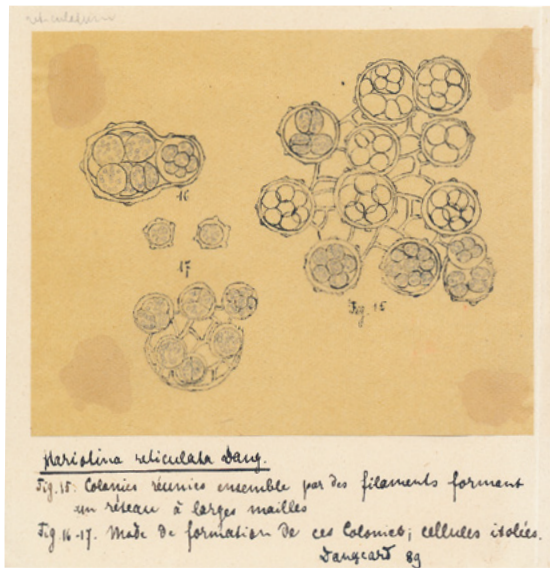 reticulatum
16
17
Fig. 15
Hariotina reticulata Dang.
Fig. 15: Colonies réunies ensemble par des filaments formant
un réseau à larges mailles
Fig. 16-17. Mode de formation de ces Colonies; cellules isolées.
Dangeard 89